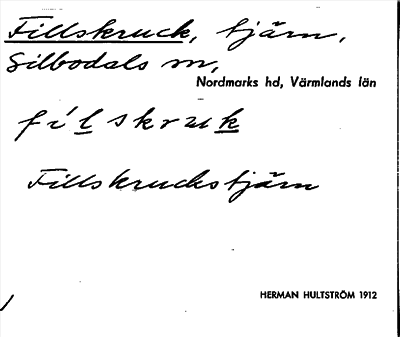 Fillskruck, tjärn,
Silbodals sn,
Nordmarks hd, Värmlands län
fílskruk
Fillskruckstjärn
HERMAN HULTSTRÖM 1912